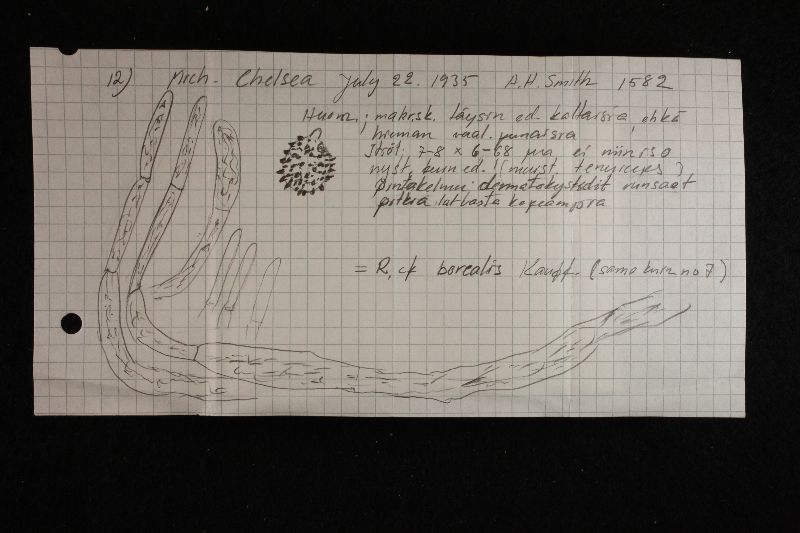 12) Mich. Chelsea July 22. 1935 A.H. Smith 1582
Huom.; makrosk. täysin ed. kaltaisia, ehkä
hieman vaal. punaisia
Itiöt; 7-8 × 6-6.8 µm, ei niin iso
nyst. kuin ed. (muist. tenuiceps)
Pintakelmu: dermatokystidit runsaat
pitkiä latvasta kapeampia
= R. cf borealis Kauff. (sama kuin no 7)